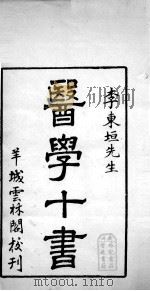 李東垣先生
醫學十書
羊城雲林閣校刊
mtoou.info